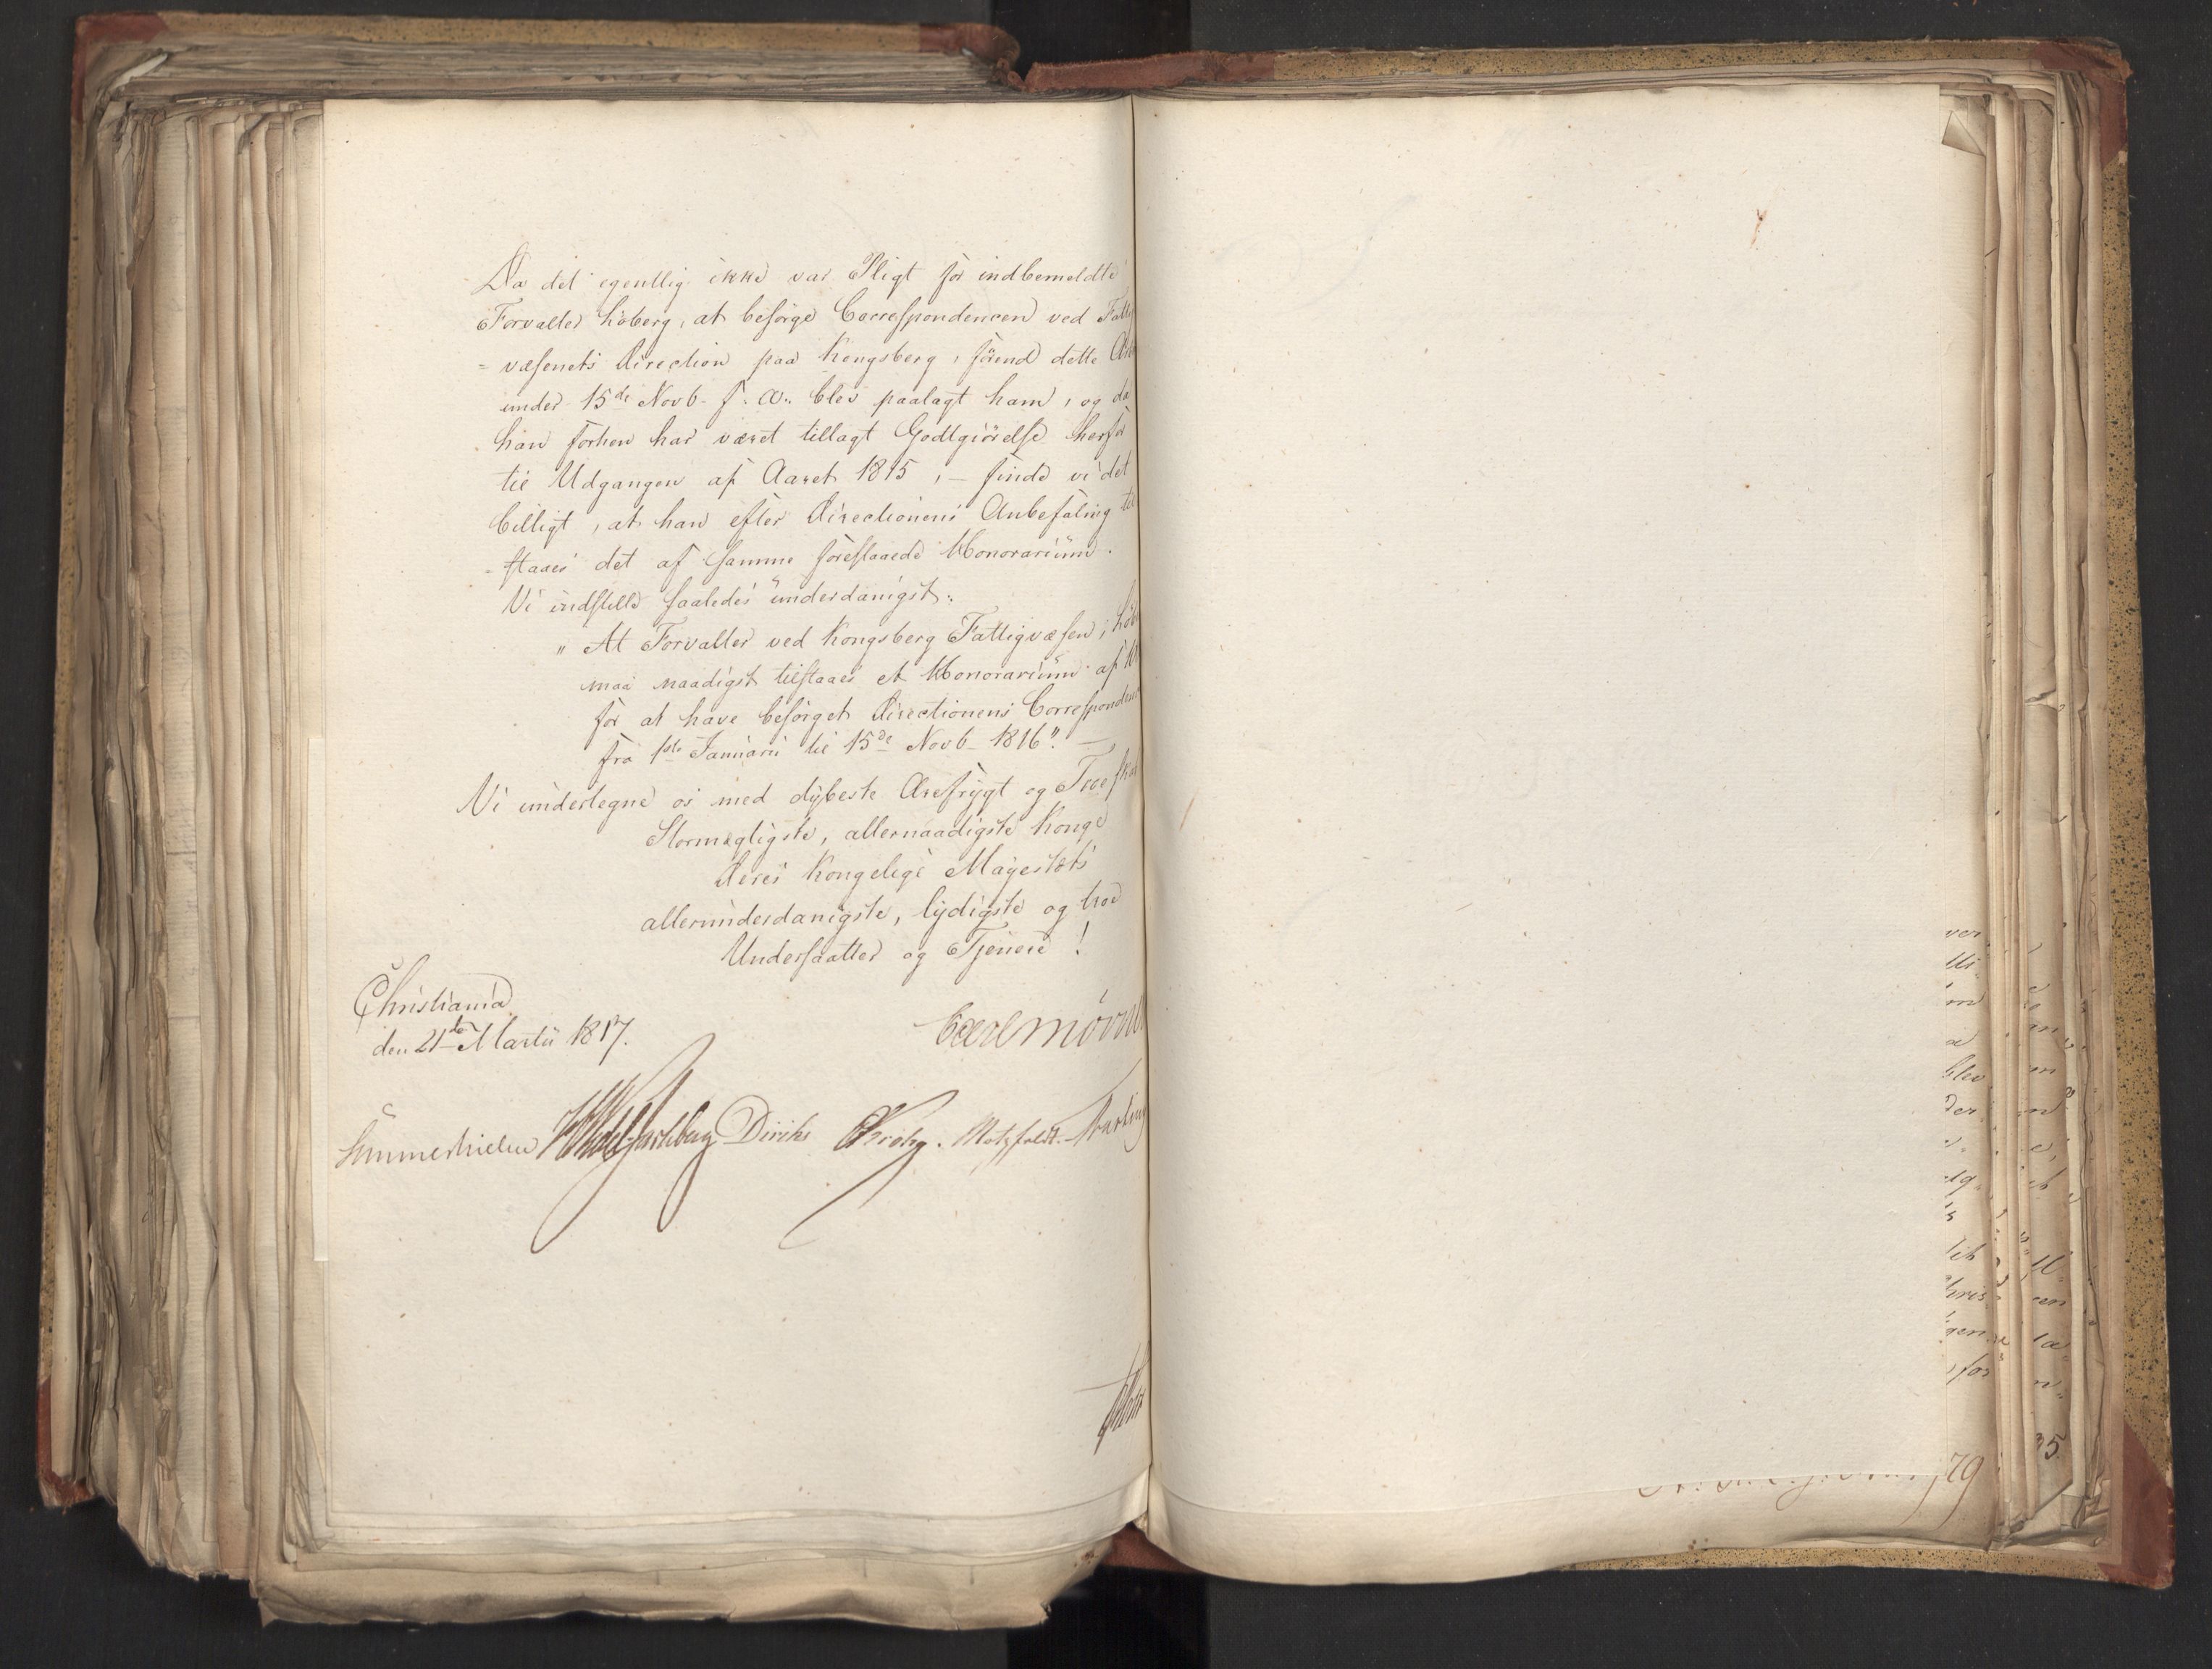 Da det egentlig ikke var Pligt for indbemeldte
Forvalter Høberg, at besørge Correspondencen ved Fattig
= væsenets Direction paa Kongsberg, førend dette
under 15de Novb. f: A: blev paalagt ham, og da
han forhen har været tillagt Godtgiørelse herfor
til Udgangen af Aaret 1815, – finde vi det
billigt, at han efter Directionens Anbefaling til
= staaes det af samme foreslaaede Honorarium.
Vi indstille saaledes underdanigst:
" At Forvalter ved Kongsberg Fattigvæsen,
maa naadigst tilstaaes et Honorarium af
for at have besørget Directionens Correspondence
fra 1ste Januarii til 15de Novb. 1816". –
Vi undertegne os med dybeste Ærefrygt og Troeskab
Stormægtigste, allernaadigste Konge
Deres Kongelige Mayestæts
allerunderdanigste, lydigste og troe
Undersaatter og Tjenere!
Christiania
den 21de Martii 1817.
Carl Mörner
Sommerhielm Diriks Krohg. Motzfeldt.
ver
blev
der
for
79
35